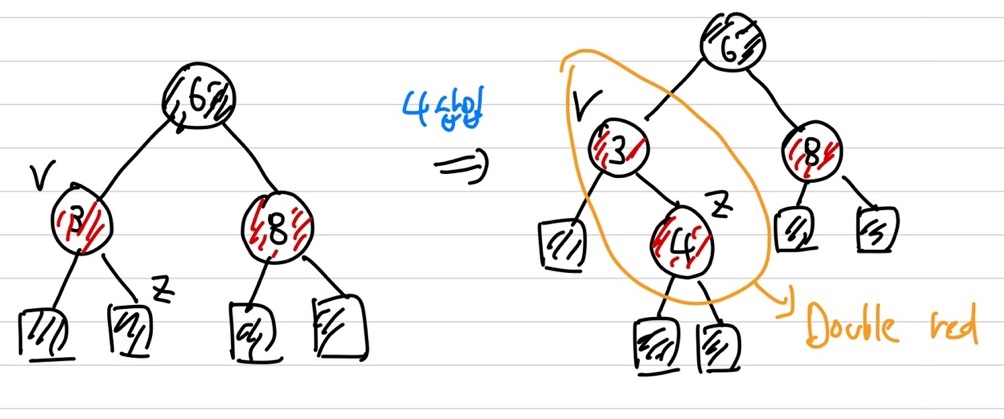 6
V
3
8
Z
4 삽입
⇒
6
V
3
8
Z
4
Double red